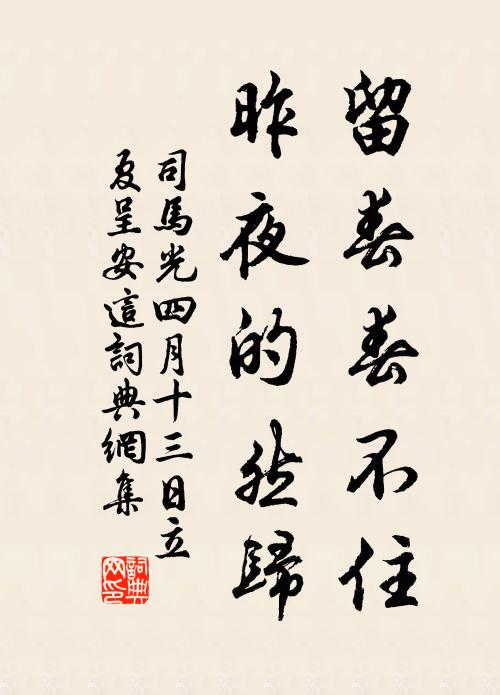 留春春不住
昨夜的然歸
司馬光四月十三日立
夏呈安這詞典網集
詞典网印